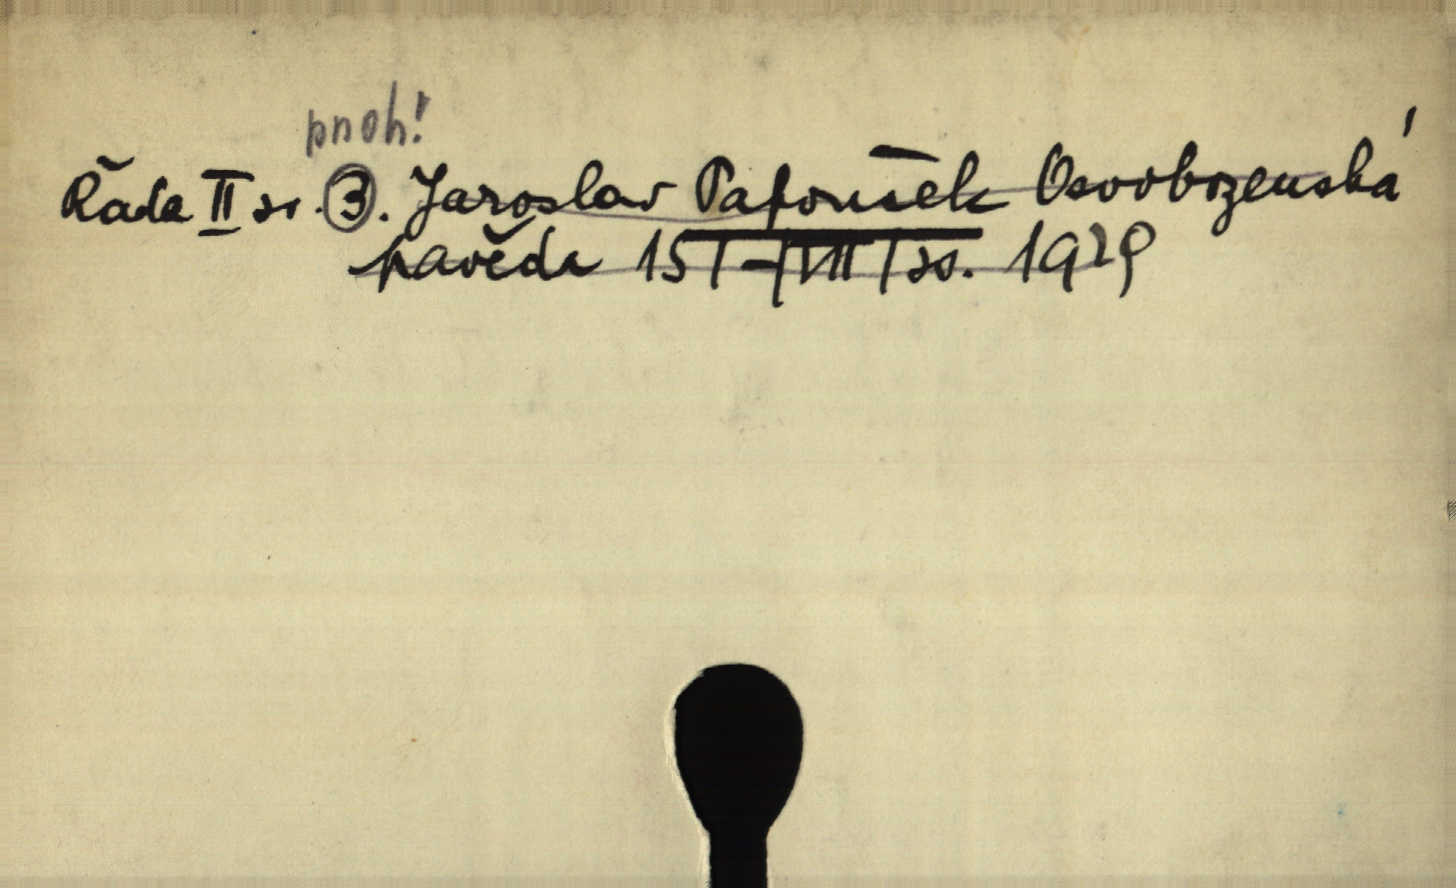 pnoh!
Řada II sv. 3. Jaroslav Papoušek Osvobozenská
pověda 15 I-VIII ss. 1929